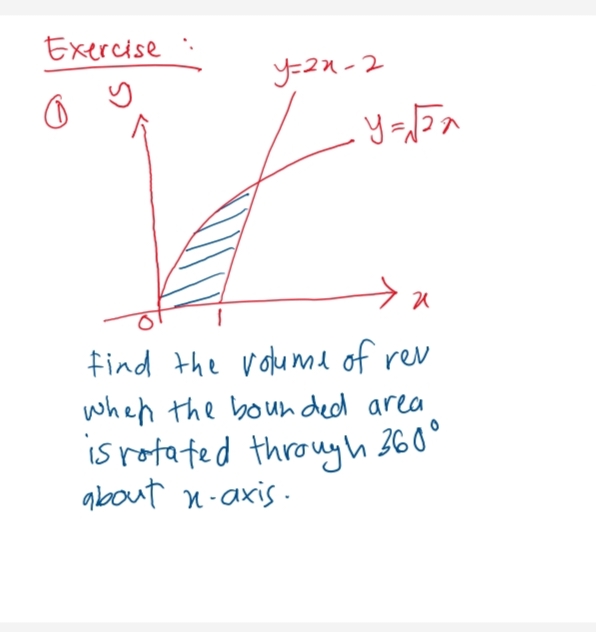 Exercise :
y=2x-2
① y
y=√2x
x
0 1
find the volume of rev
when the bounded area
is rotated through 360°
about x-axis.